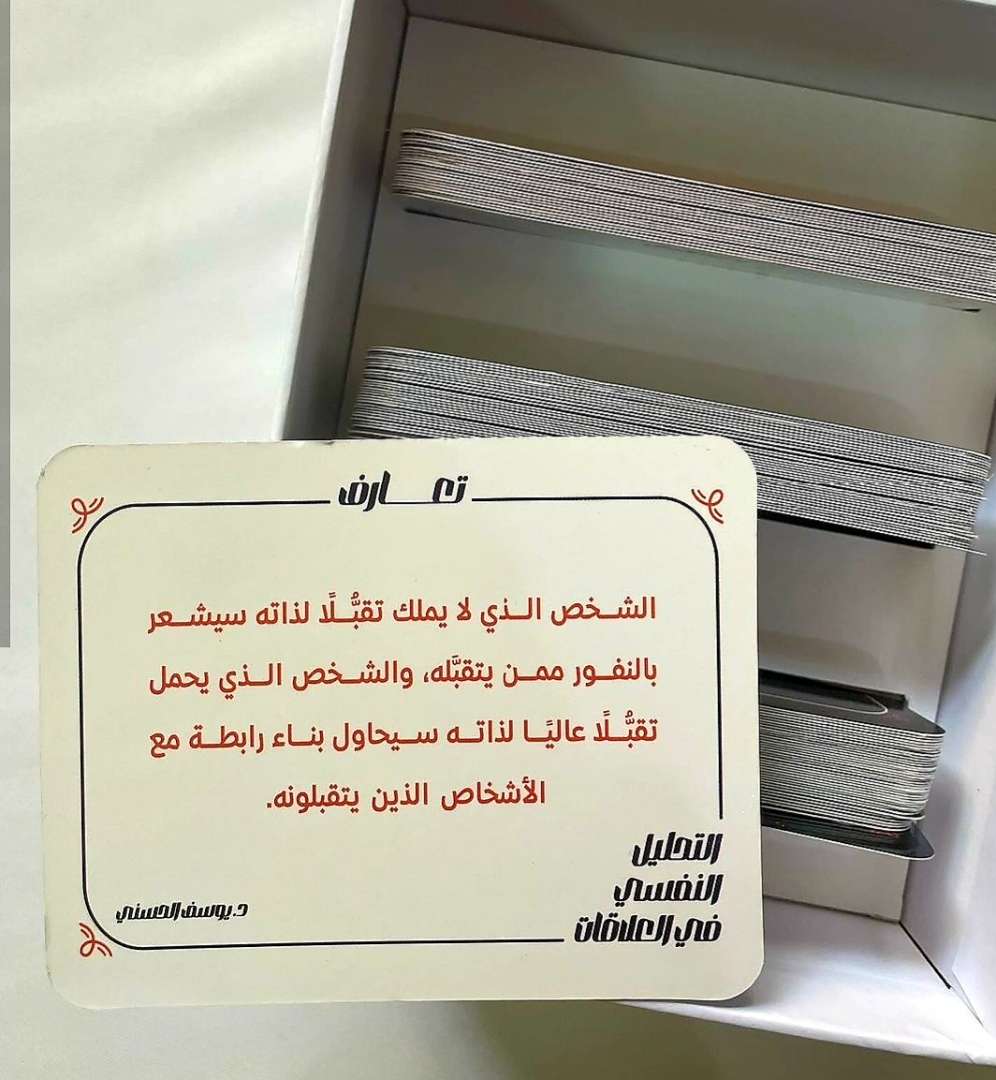 تعارف
الشخص الذي لا يملك تقبُّلًا لذاته سيشعر
بالنفور ممن يتقبَّله، والشخص الذي يحمل
تقبُّلًا عاليًا لذاته سيحاول بناء رابطة مع
الأشخاص الذين يتقبلونه.
التحليل
النفسي
في العلاقات
د.يوسف الحسني